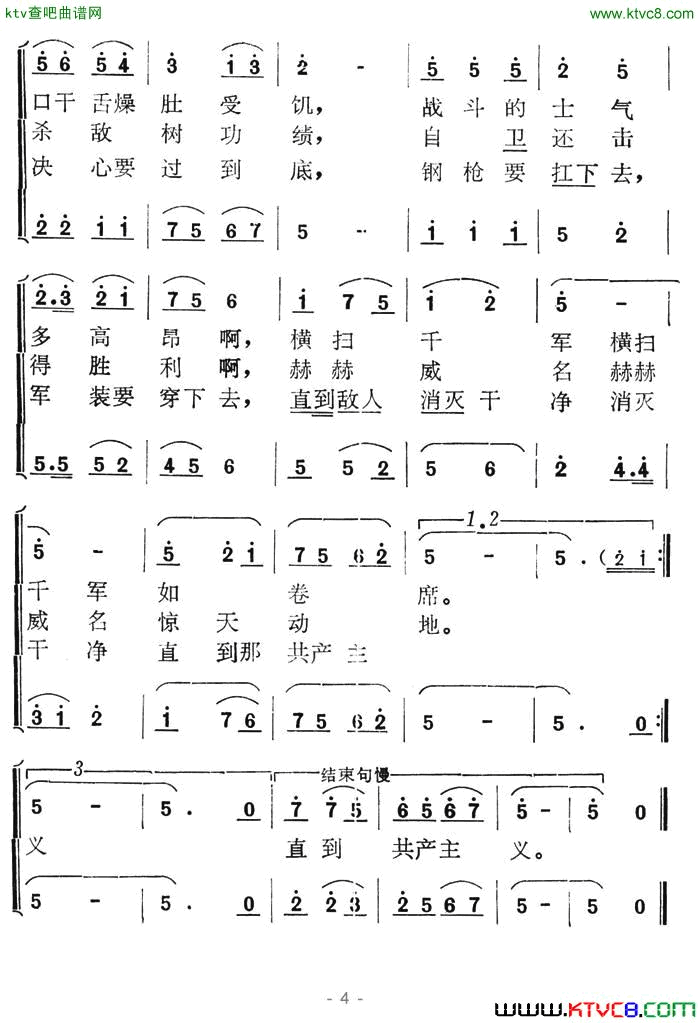 ktv查吧曲谱网
www.ktvc8.com
5 6 5 4 | 3 1 3 | 2 - | 5 5 5 | 2 5
口干舌燥 肚 受 饥， 战 斗 的 士 气
杀 敌 树 功 绩， 自 卫 还 击
决 心要 过 到 底， 钢 枪 要 扛下 去，
2 2 1 1 | 7 5 6 7 | 5 - | 1 1 1 | 5 2
2.3 2 1 | 7 5 6 | 1 7 5 | 1 2 | 5 -
多 高 昂 啊， 横 扫 千 军 横扫
得 胜 利 啊， 赫赫 威 名 赫赫
军 装要 穿下 去， 直到敌人 消灭 干 净 消灭
5.5 5 2 | 4 5 6 | 5 5 2 | 5 6 | 2 4.4
1.2
5 - | 5 2 1 | 7 5 6 2 | 5 - | 5 . ( 2 1 :||
千 军 如 卷 席。
威 名 惊 天 动 地。
干 净 直 到那 共产 主
3 1 2 | 1 7 6 | 7 5 6 2 | 5 - | 5 . 0 :||
3 结束句慢
5 - | 5 . 0 | 7 7 5 | 6 5 6 7 | 5 - | 5 0 ||
义 直 到 共产 主 义。
5 - | 5 . 0 | 2 2 3 | 2 5 6 7 | 5 - | 5 0 ||
- 4 -
www.KTVC8.com